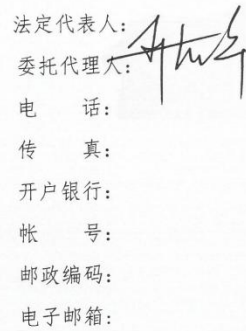 法定代表人:
委托代理人:
电 话:
传 真:
开户银行:
帐 号:
邮政编码:
电子邮箱: